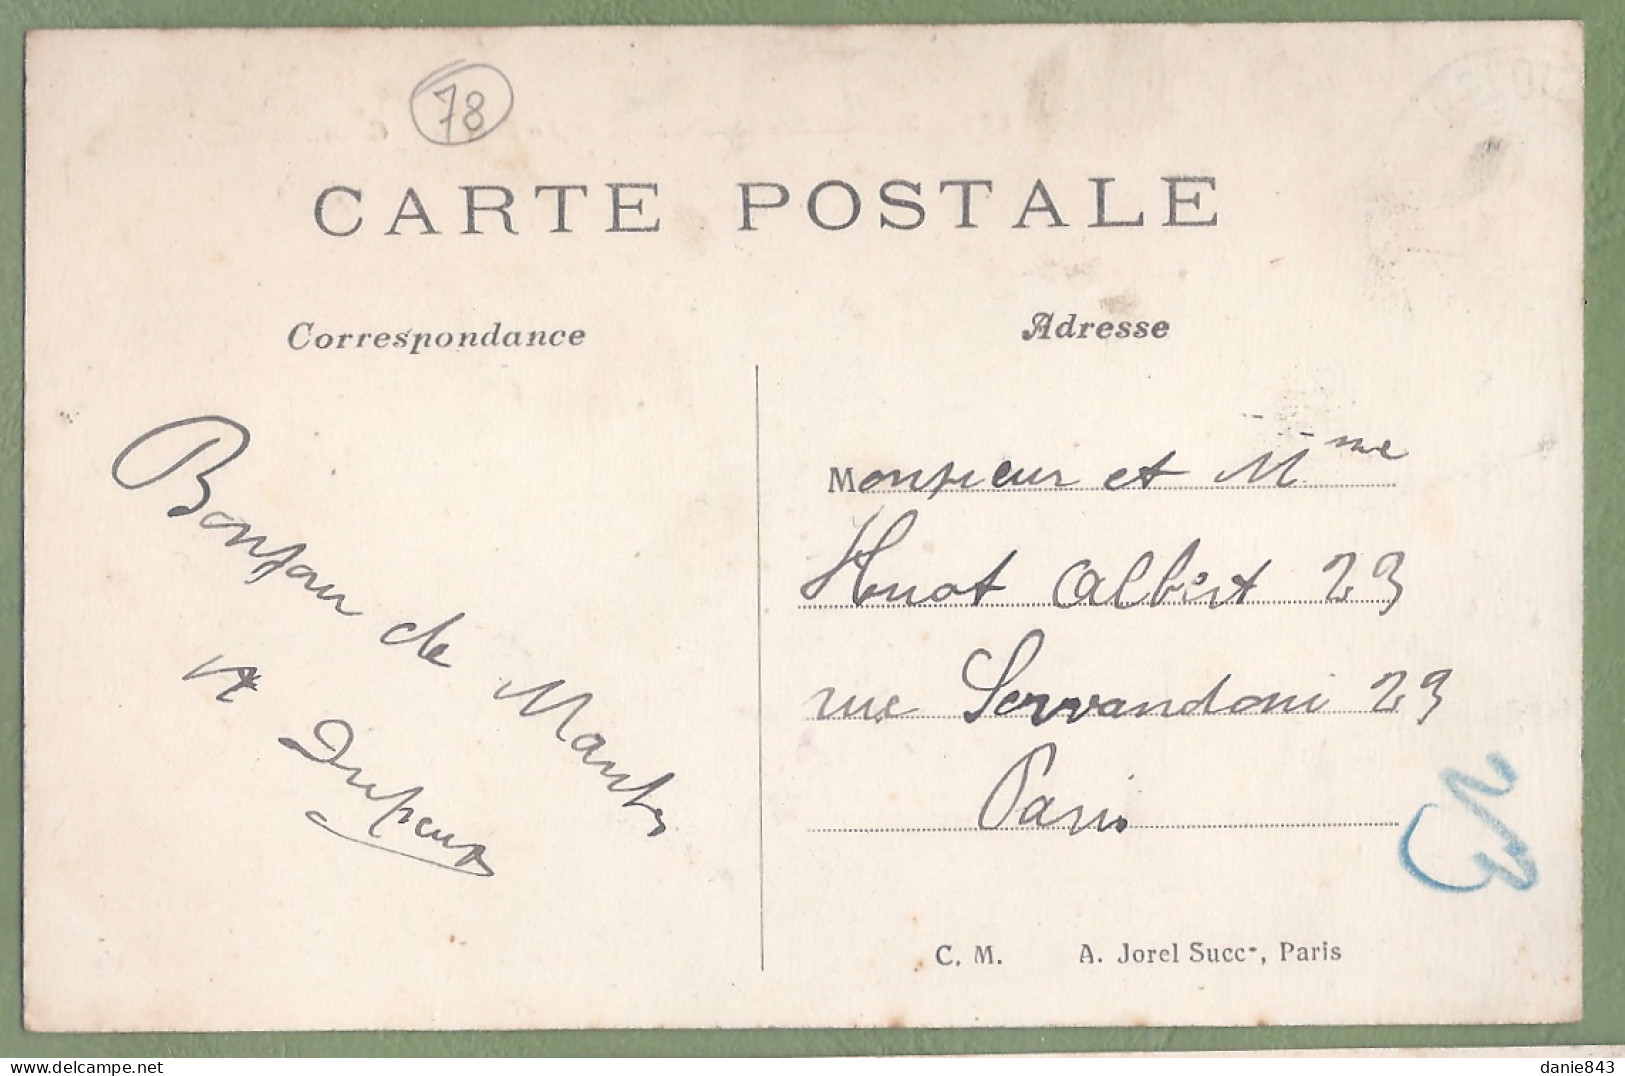 78
CARTE POSTALE
Correspondance
Adresse
Bonjour de Mantes
Monsieur et Mme
Huot Albert 23
rue Servandoni 23
Paris
C. M. A. Jorel Succr, Paris
danie843